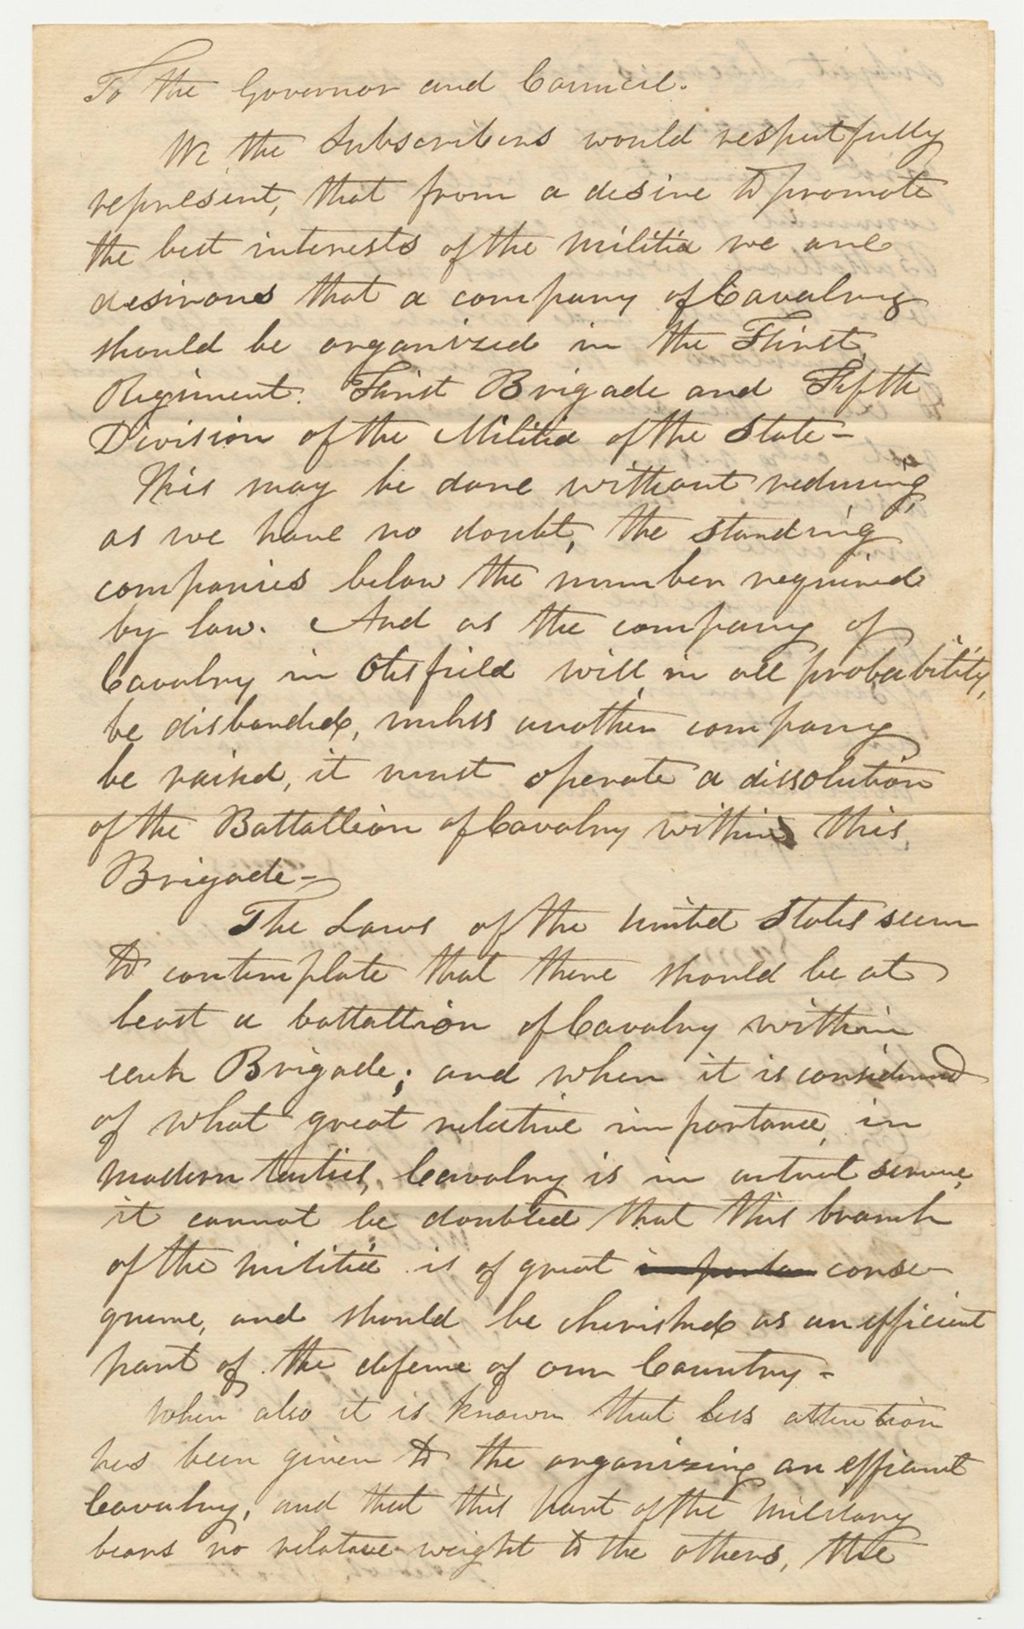 To the Governor and Council.
We the Subscribers would respectfully
represent, that from a desire to promote
the best interests of the Militia we are
desirous that a company of Cavalry
should be organized in the First
Regiment. First Brigade and Fifth
Division of the Militia of the State-
This may be done without reducing,
as we have no doubt, the standing
companies below the number required
by law. And as the company of
Cavalry in Otisfield will, in all probability,
be disbanded, unless another company
be raised, it must operate a dissolution
of the Battallion of Cavalry within this
Brigade-
The Laws of the United States seem
to contemplate that there should be at
least a battallion of Cavalry within
each Brigade; and when it is considered
of what great relative importance, in
modern tactics, Cavalry is in actual service,
it cannot be doubted that this branch
of the militia is of great importan conse-
quence, and should be cherished as an efficient
part of the defence of our Country-
When also it is known that less attention
has been given to the organizing an efficient
Cavalry, and that this part of the military
bears no relative weight to the others, the